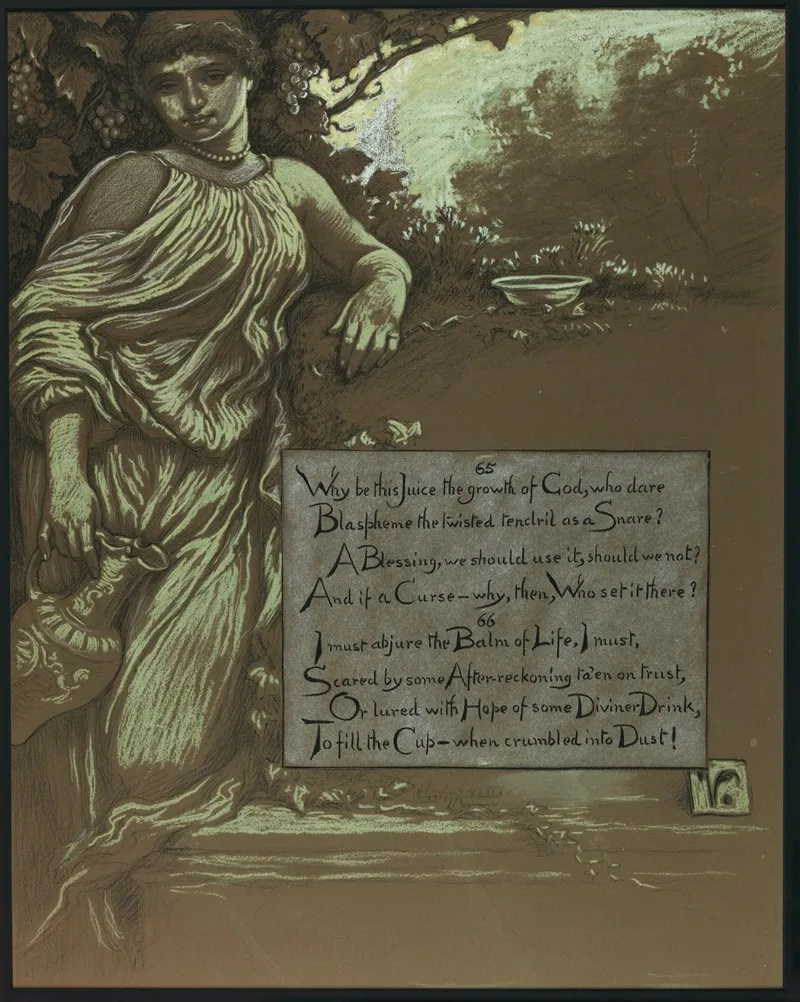 65
Why be this Juice the growth of God, who dare
Blaspheme the twisted tendril as a Snare?
A Blessing, we should use it, should we not?
And if a Curse—why, then, Who set it there?
66
I must abjure the Balm of Life, I must,
Scared by some After-reckoning ta'en on trust,
Or lured with Hope of some Diviner Drink,
To fill the Cup—when crumbled into Dust!